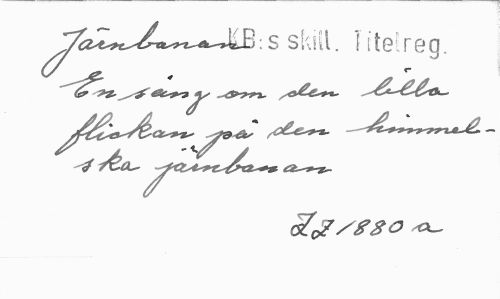 Järnbanan KB:s skill. Titelreg.
En sång om den lilla
flickan på den himmel-
ska järnbanan
ZZ 1880 a